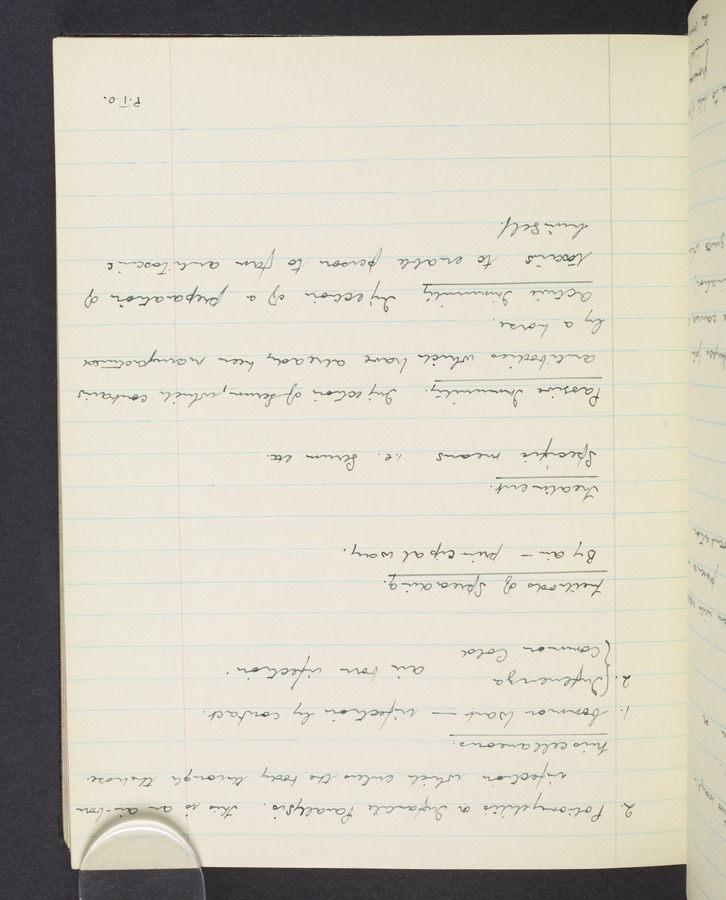 2. Poliomyelitis or Infantile Paralysis. This is an air-born
infection which enters the body through the nose.
Miscellaneous.
1. Common Wart — infection by contact.
2. { Influenza air born infection.
{ Common Cold
Methods of Spreading.
By air — principal way.
Treatment.
Specific means i.e. Serum etc.
Passive Immunity. Injection of serum, which contains
antibodies which have already been manufactured
by a horse.
Active Immunity Injection of a preparation of
toxins to enable person to form antitoxin
himself.
P.T.O.